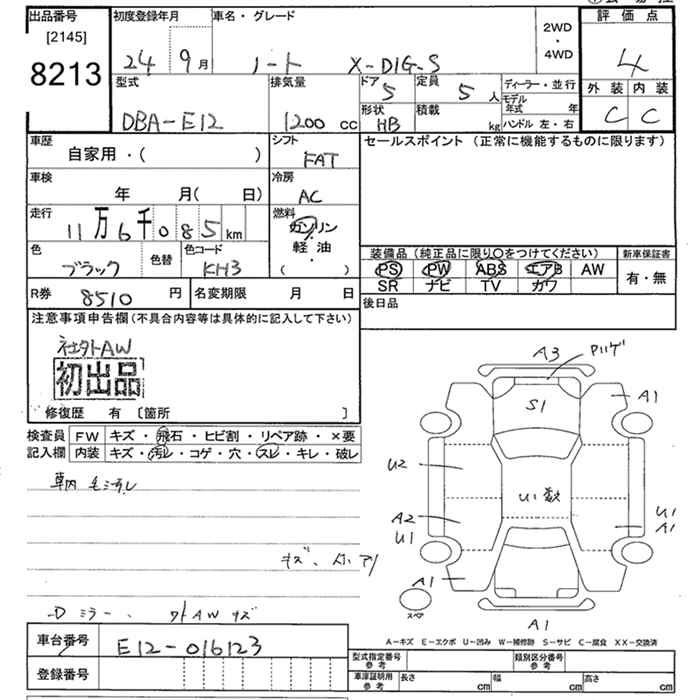 出品番号
[2145]
8213
初度登録年月
24 9月
車名・グレード
ノート X-DIG-S
2WD
・
4WD
評価点
4
外装 内装
C C
型式
DBA-E12
排気量
1200 cc
ドア
5
定員
5 人
ディーラー・並行
モデル年式 年
形状
HB
積載
kg
ハンドル 左・右
車歴
自家用・( )
シフト
FAT
セールスポイント (正常に機能するものに限ります)
車検
年 月( 日)
冷房
AC
走行
11万6千085km
燃料
ガソリン
・
軽油
・
( )
色
ブラック
色替
色コード
KH3
装備品(純正品に限り○をつけてください)
新車保証書
PS PW ABS エアB AW
SR ナビ TV カワ
有・無
R券
8510 円
名変期限 月 日
後日品
注意事項申告欄(不具合内容等は具体的に記入して下さい)
社外AW
初出品
修復歴 有 〔箇所 〕
検査員
記入欄
FW キズ・飛石・ヒビ割・リペア跡・×要
内装 キズ・汚レ・コゲ・穴・スレ・キレ・破レ
キズ、
Dミラー、
AWキズ
A3
A1
S1
U2
U1
A2
U1
A1
U1
A1
A1
スペア
A1
A-キズ E-エクボ U-凹み W-補修跡 S-サビ C-腐食 XX-交換済
車台番号
E12-016123
登録番号
型式指定番号
参考
類別区分番号
参考
車庫証明用
参考
長さ cm
幅 cm
高さ cm